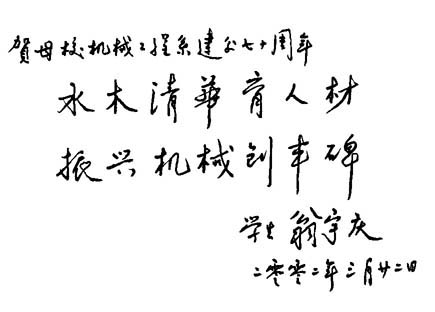 贺母校机械工程系建系七十周年
水木清华育人材
振兴机械创丰碑
学生 翁宇庆
二零零二年三月廿二日